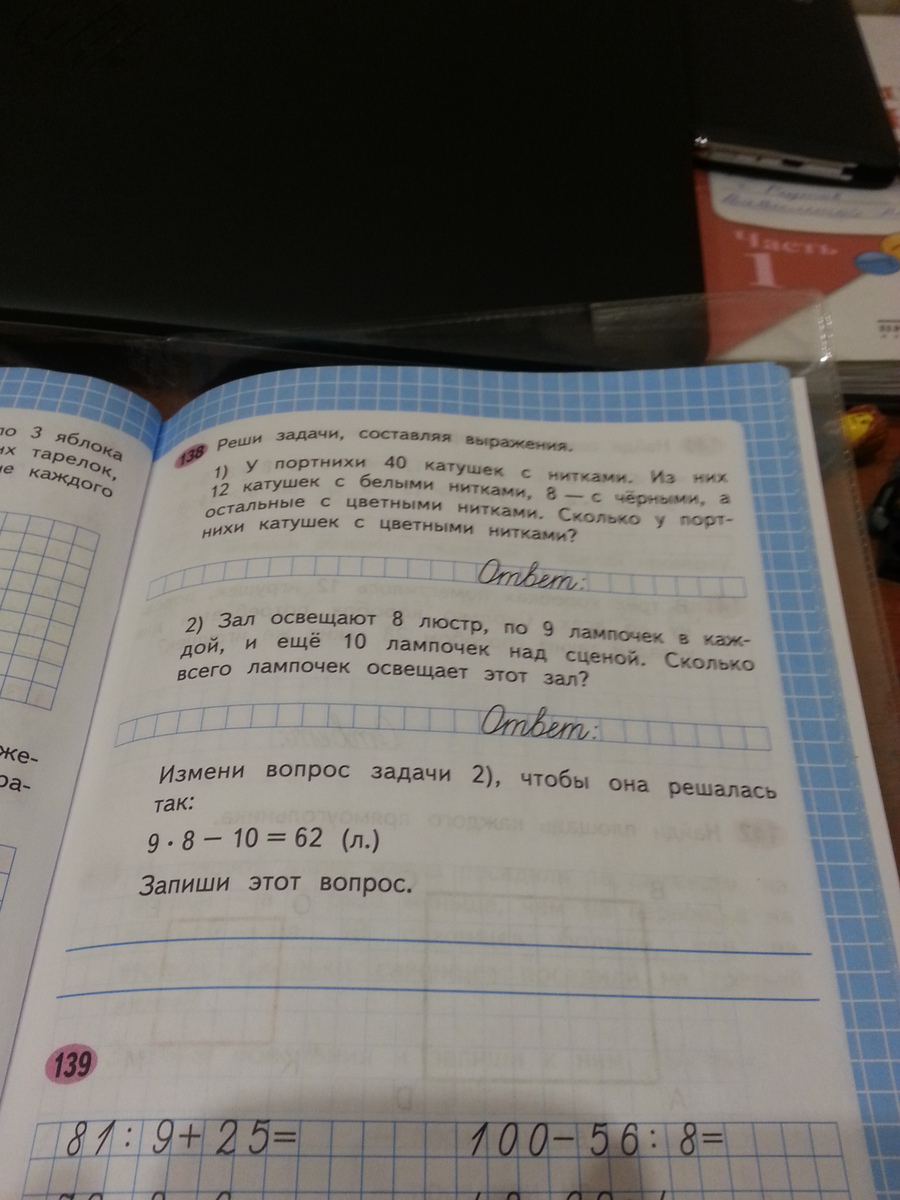 Часть
1
по 3 яблока
их тарелок,
е каждого
же-
ра-
138 Реши задачи, составляя выражения.
1) У портнихи 40 катушек с нитками. Из них
12 катушек с белыми нитками, 8 — с чёрными, а
остальные с цветными нитками. Сколько у порт-
нихи катушек с цветными нитками?
Ответ:
2) Зал освещают 8 люстр, по 9 лампочек в каж-
дой, и ещё 10 лампочек над сценой. Сколько
всего лампочек освещает этот зал?
Ответ:
Измени вопрос задачи 2), чтобы она решалась
так:
9 · 8 − 10 = 62 (л.)
Запиши этот вопрос.
139
81 : 9 + 25 =
100 − 56 : 8 =